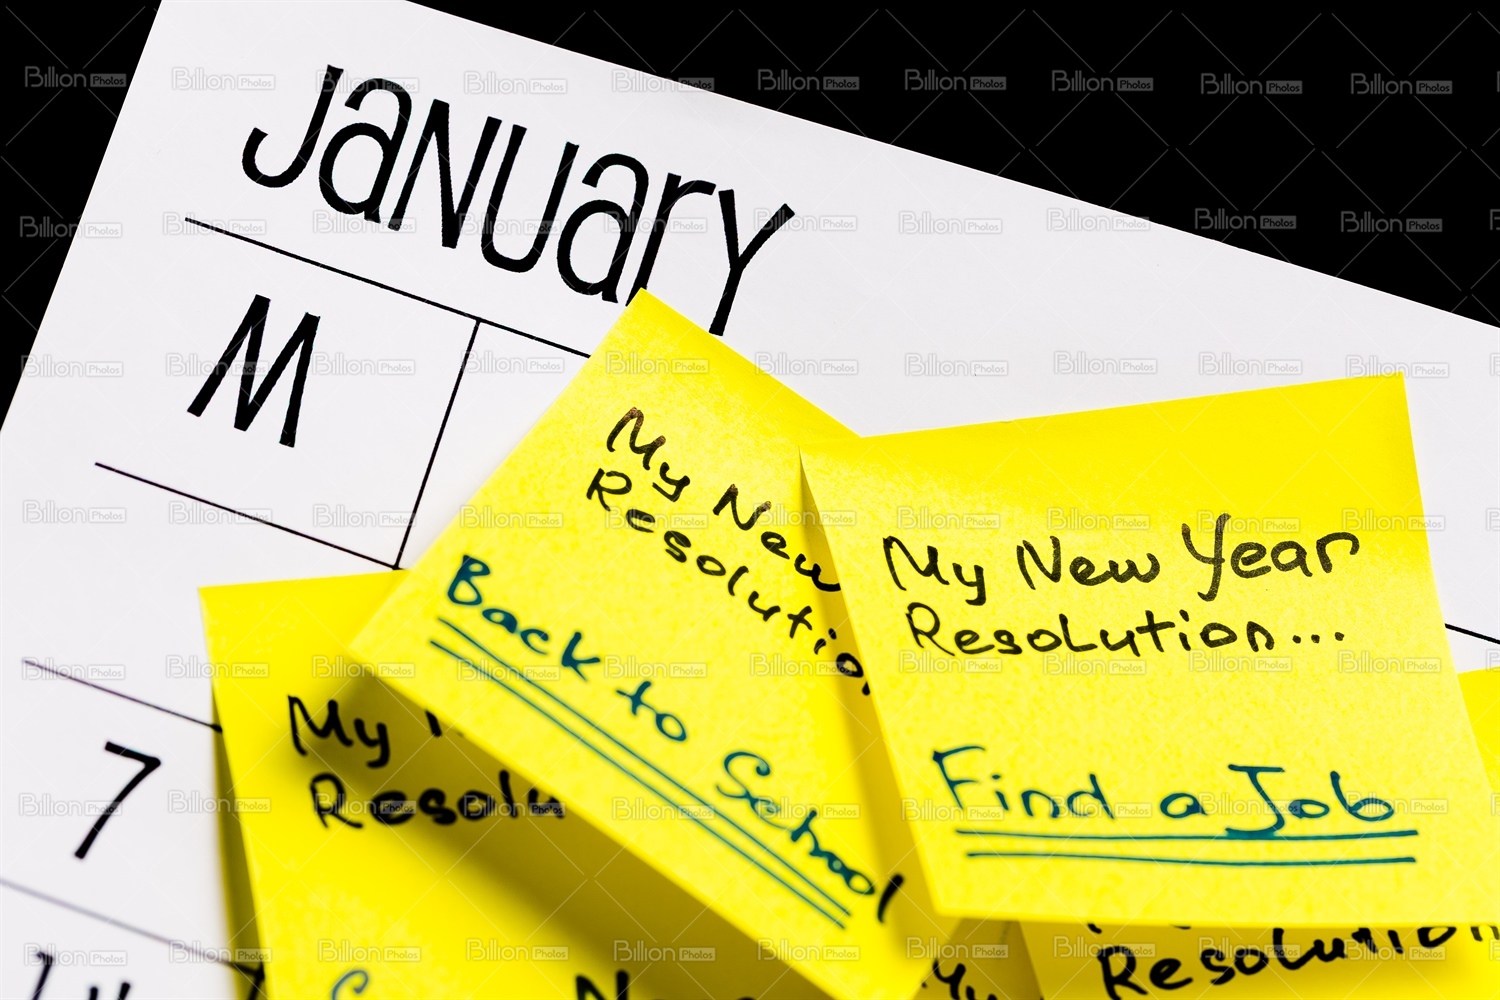 January
M
7
My New
Resolution
Back to School
My New Year
Resolution...
Find a Job
My
Resolu
My
Resolution
Billion Photos